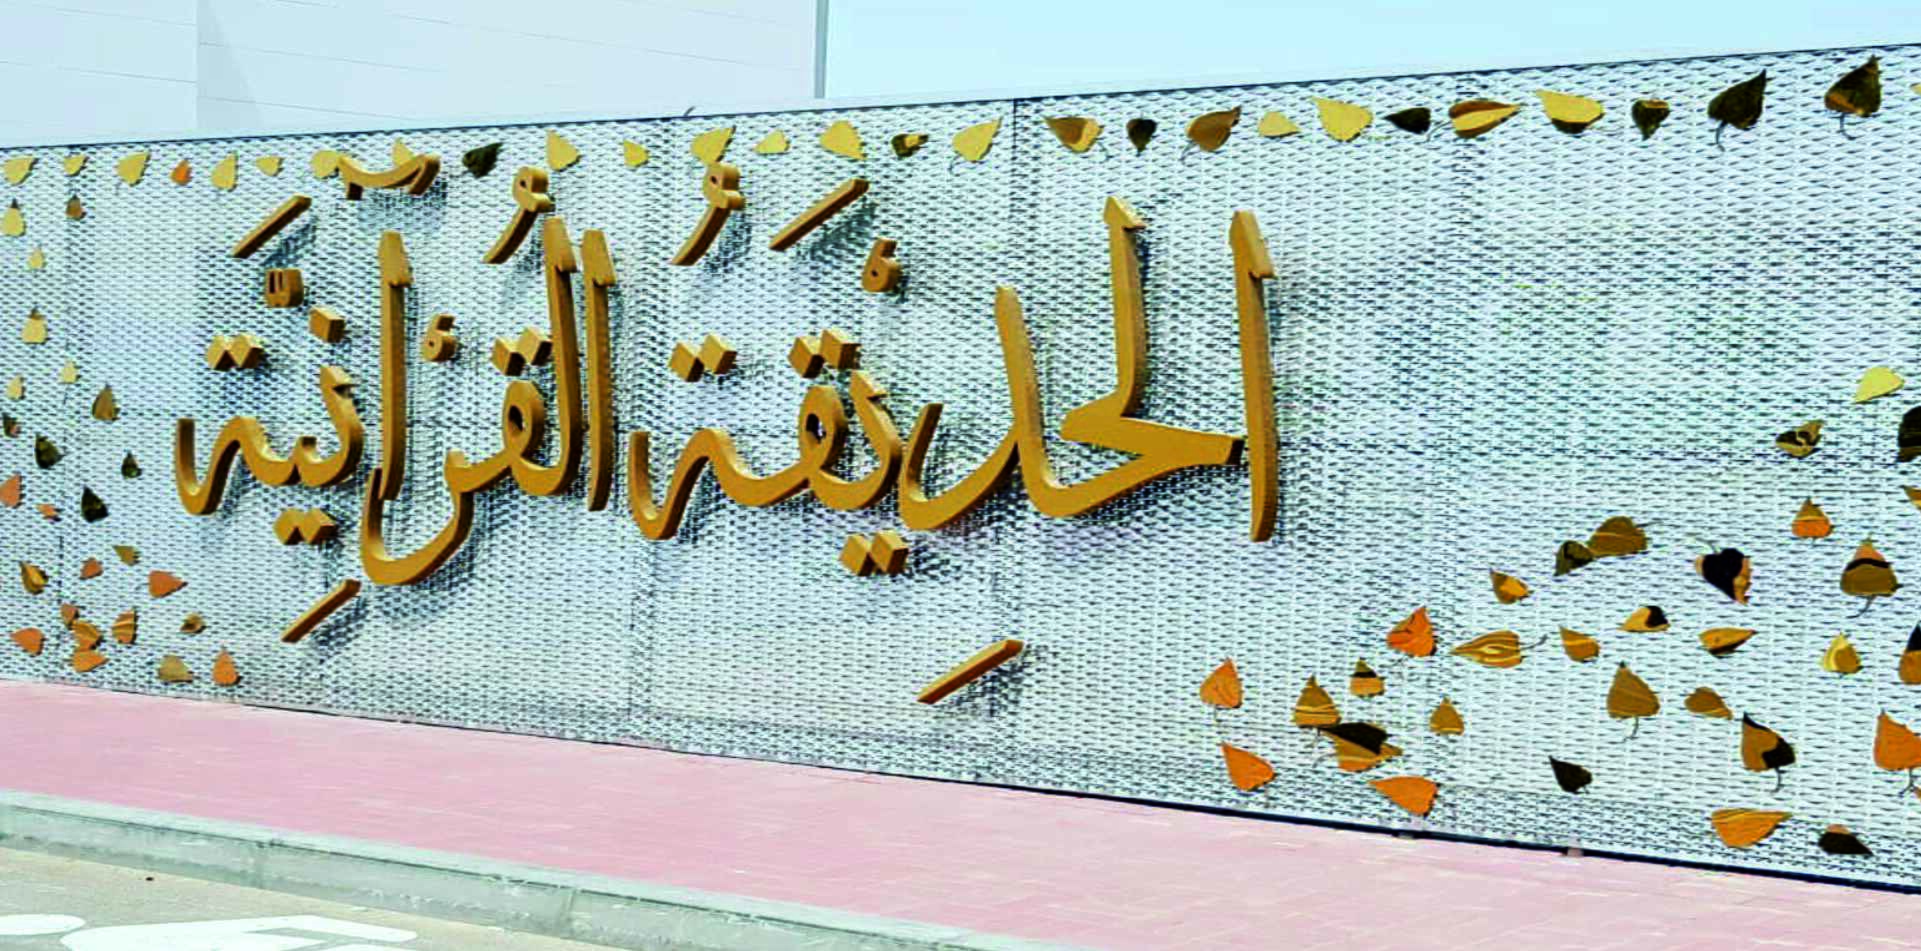 الحْدِيقَةُ القُرْآنِيَّة